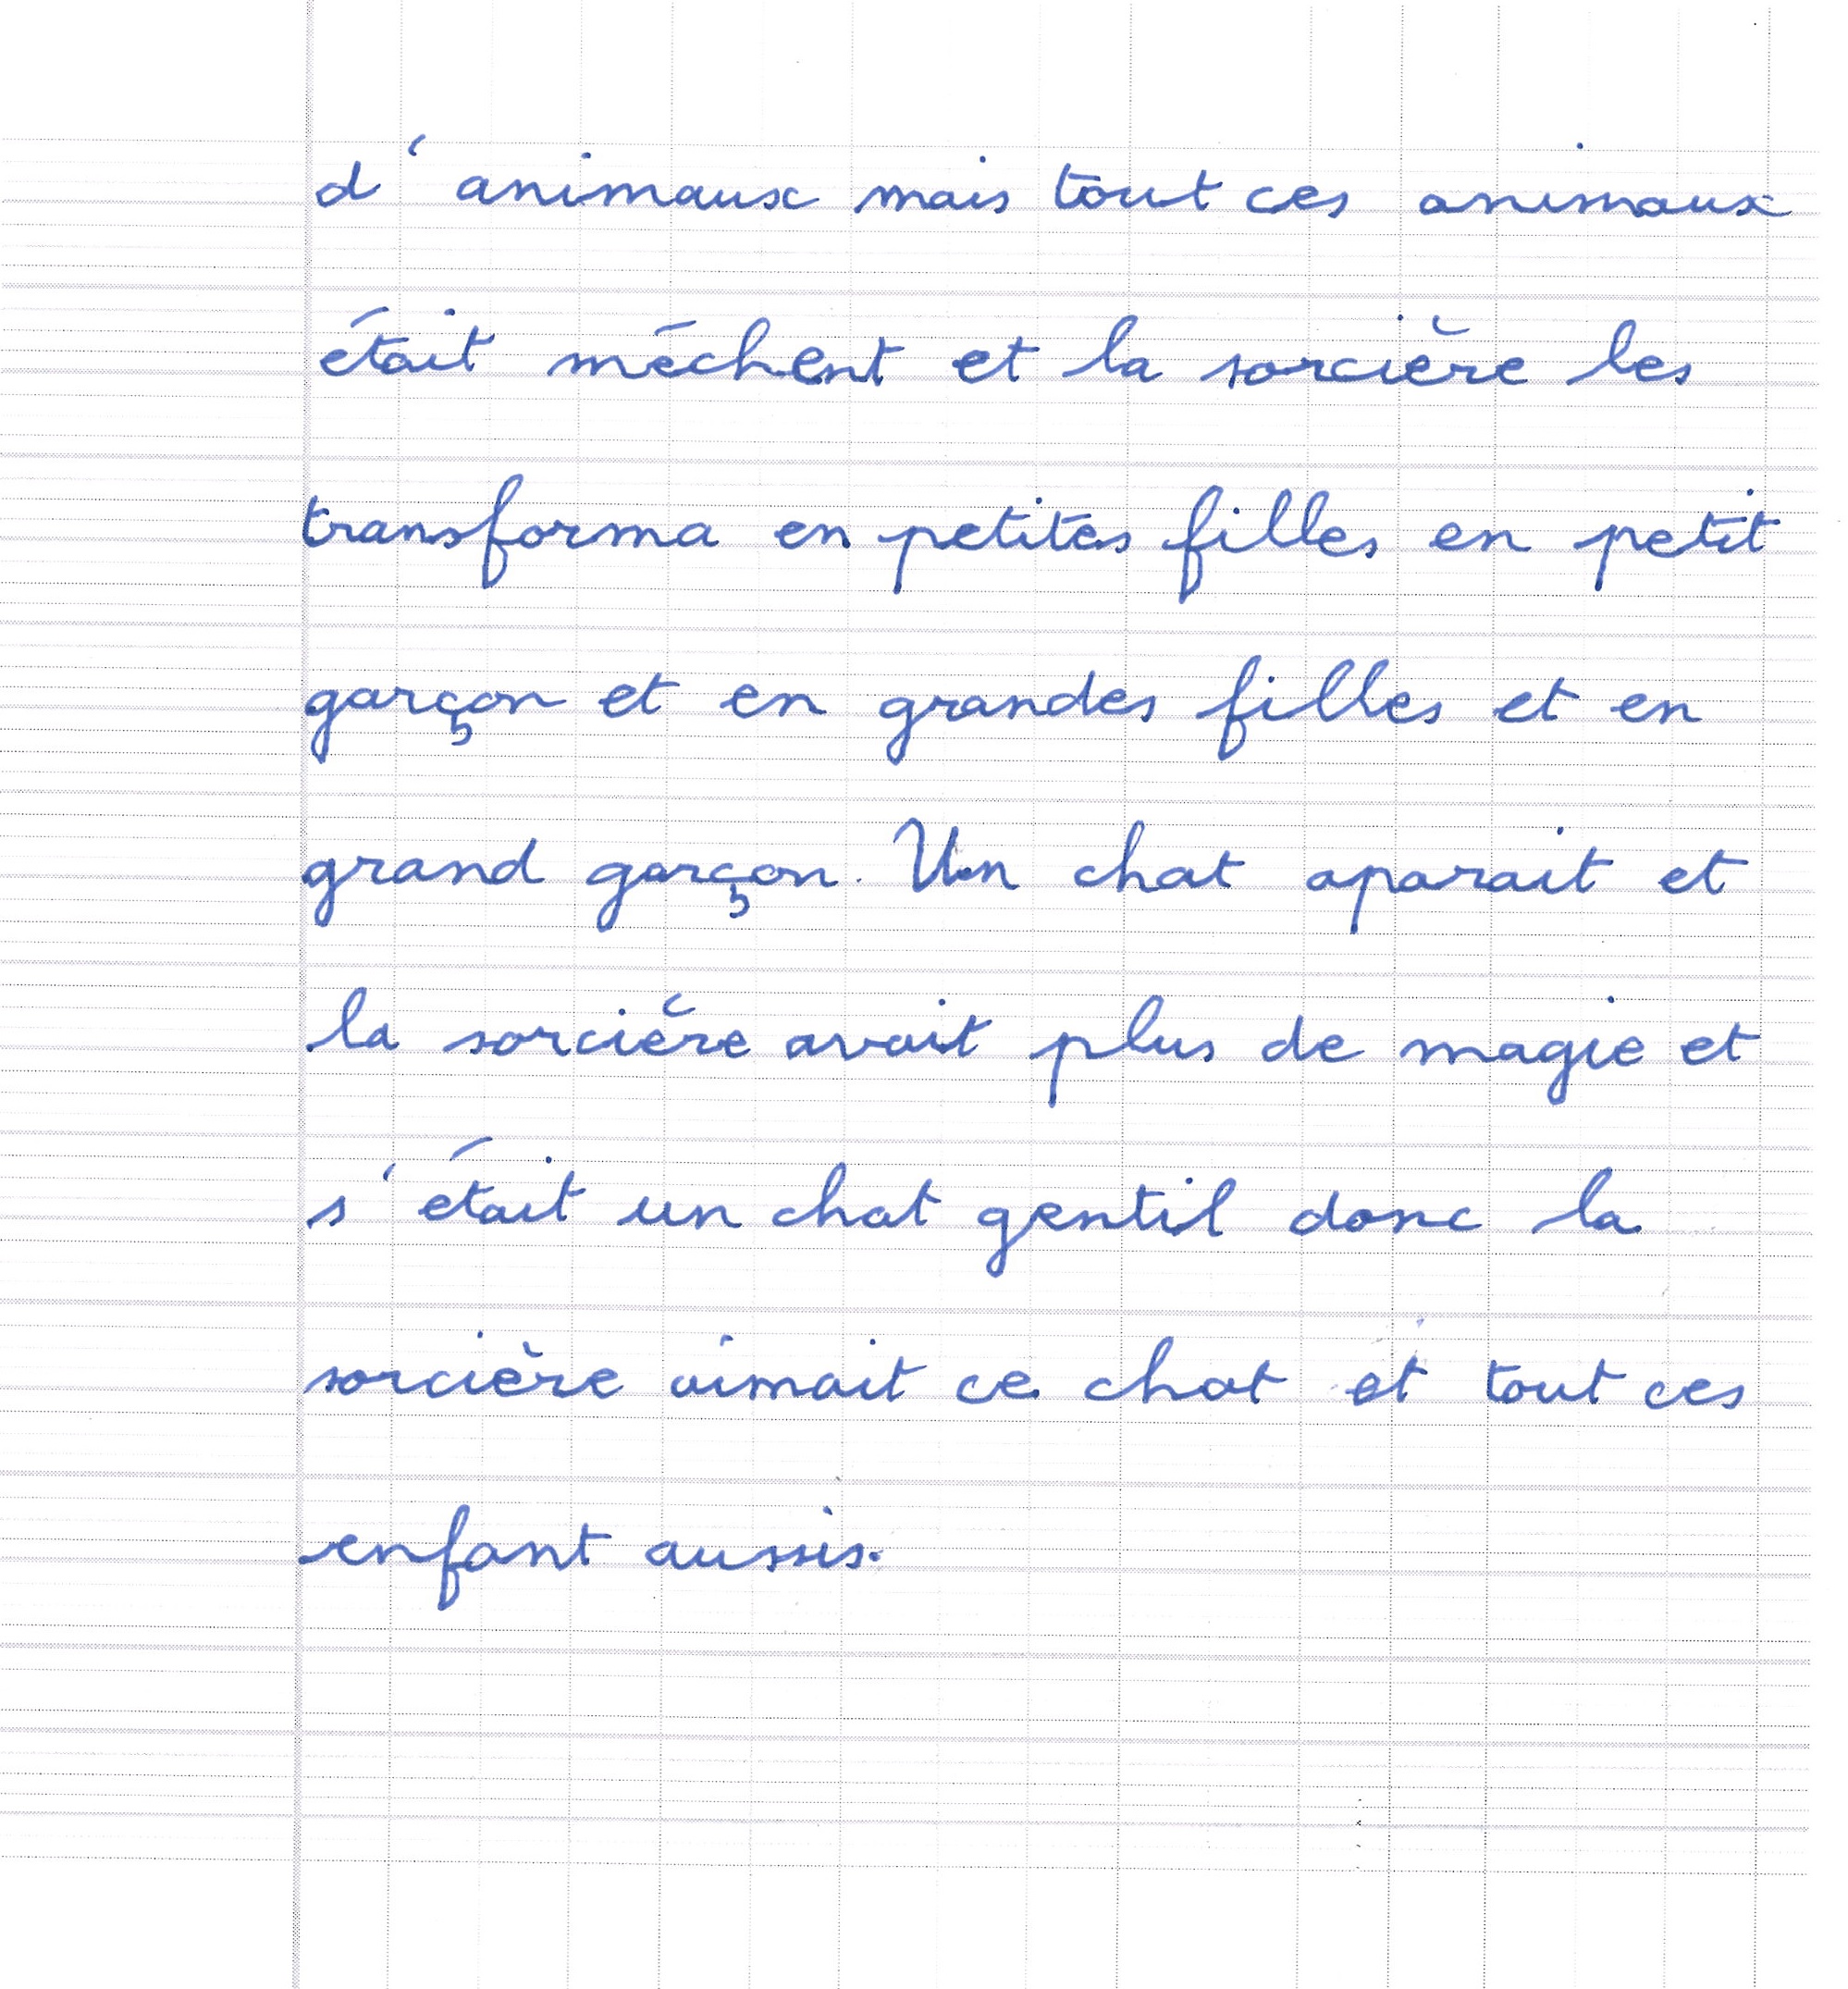 d'animaux mais tout ces animaux
était méchent et la sorcière les
transforma en petites filles en petit
garçon et en grandes filles et en
grand garçon. Un chat aparait et
la sorcière avait plus de magie et
s'était un chat gentil donc la
sorcière aimait ce chat et tout ces
enfant aussis.